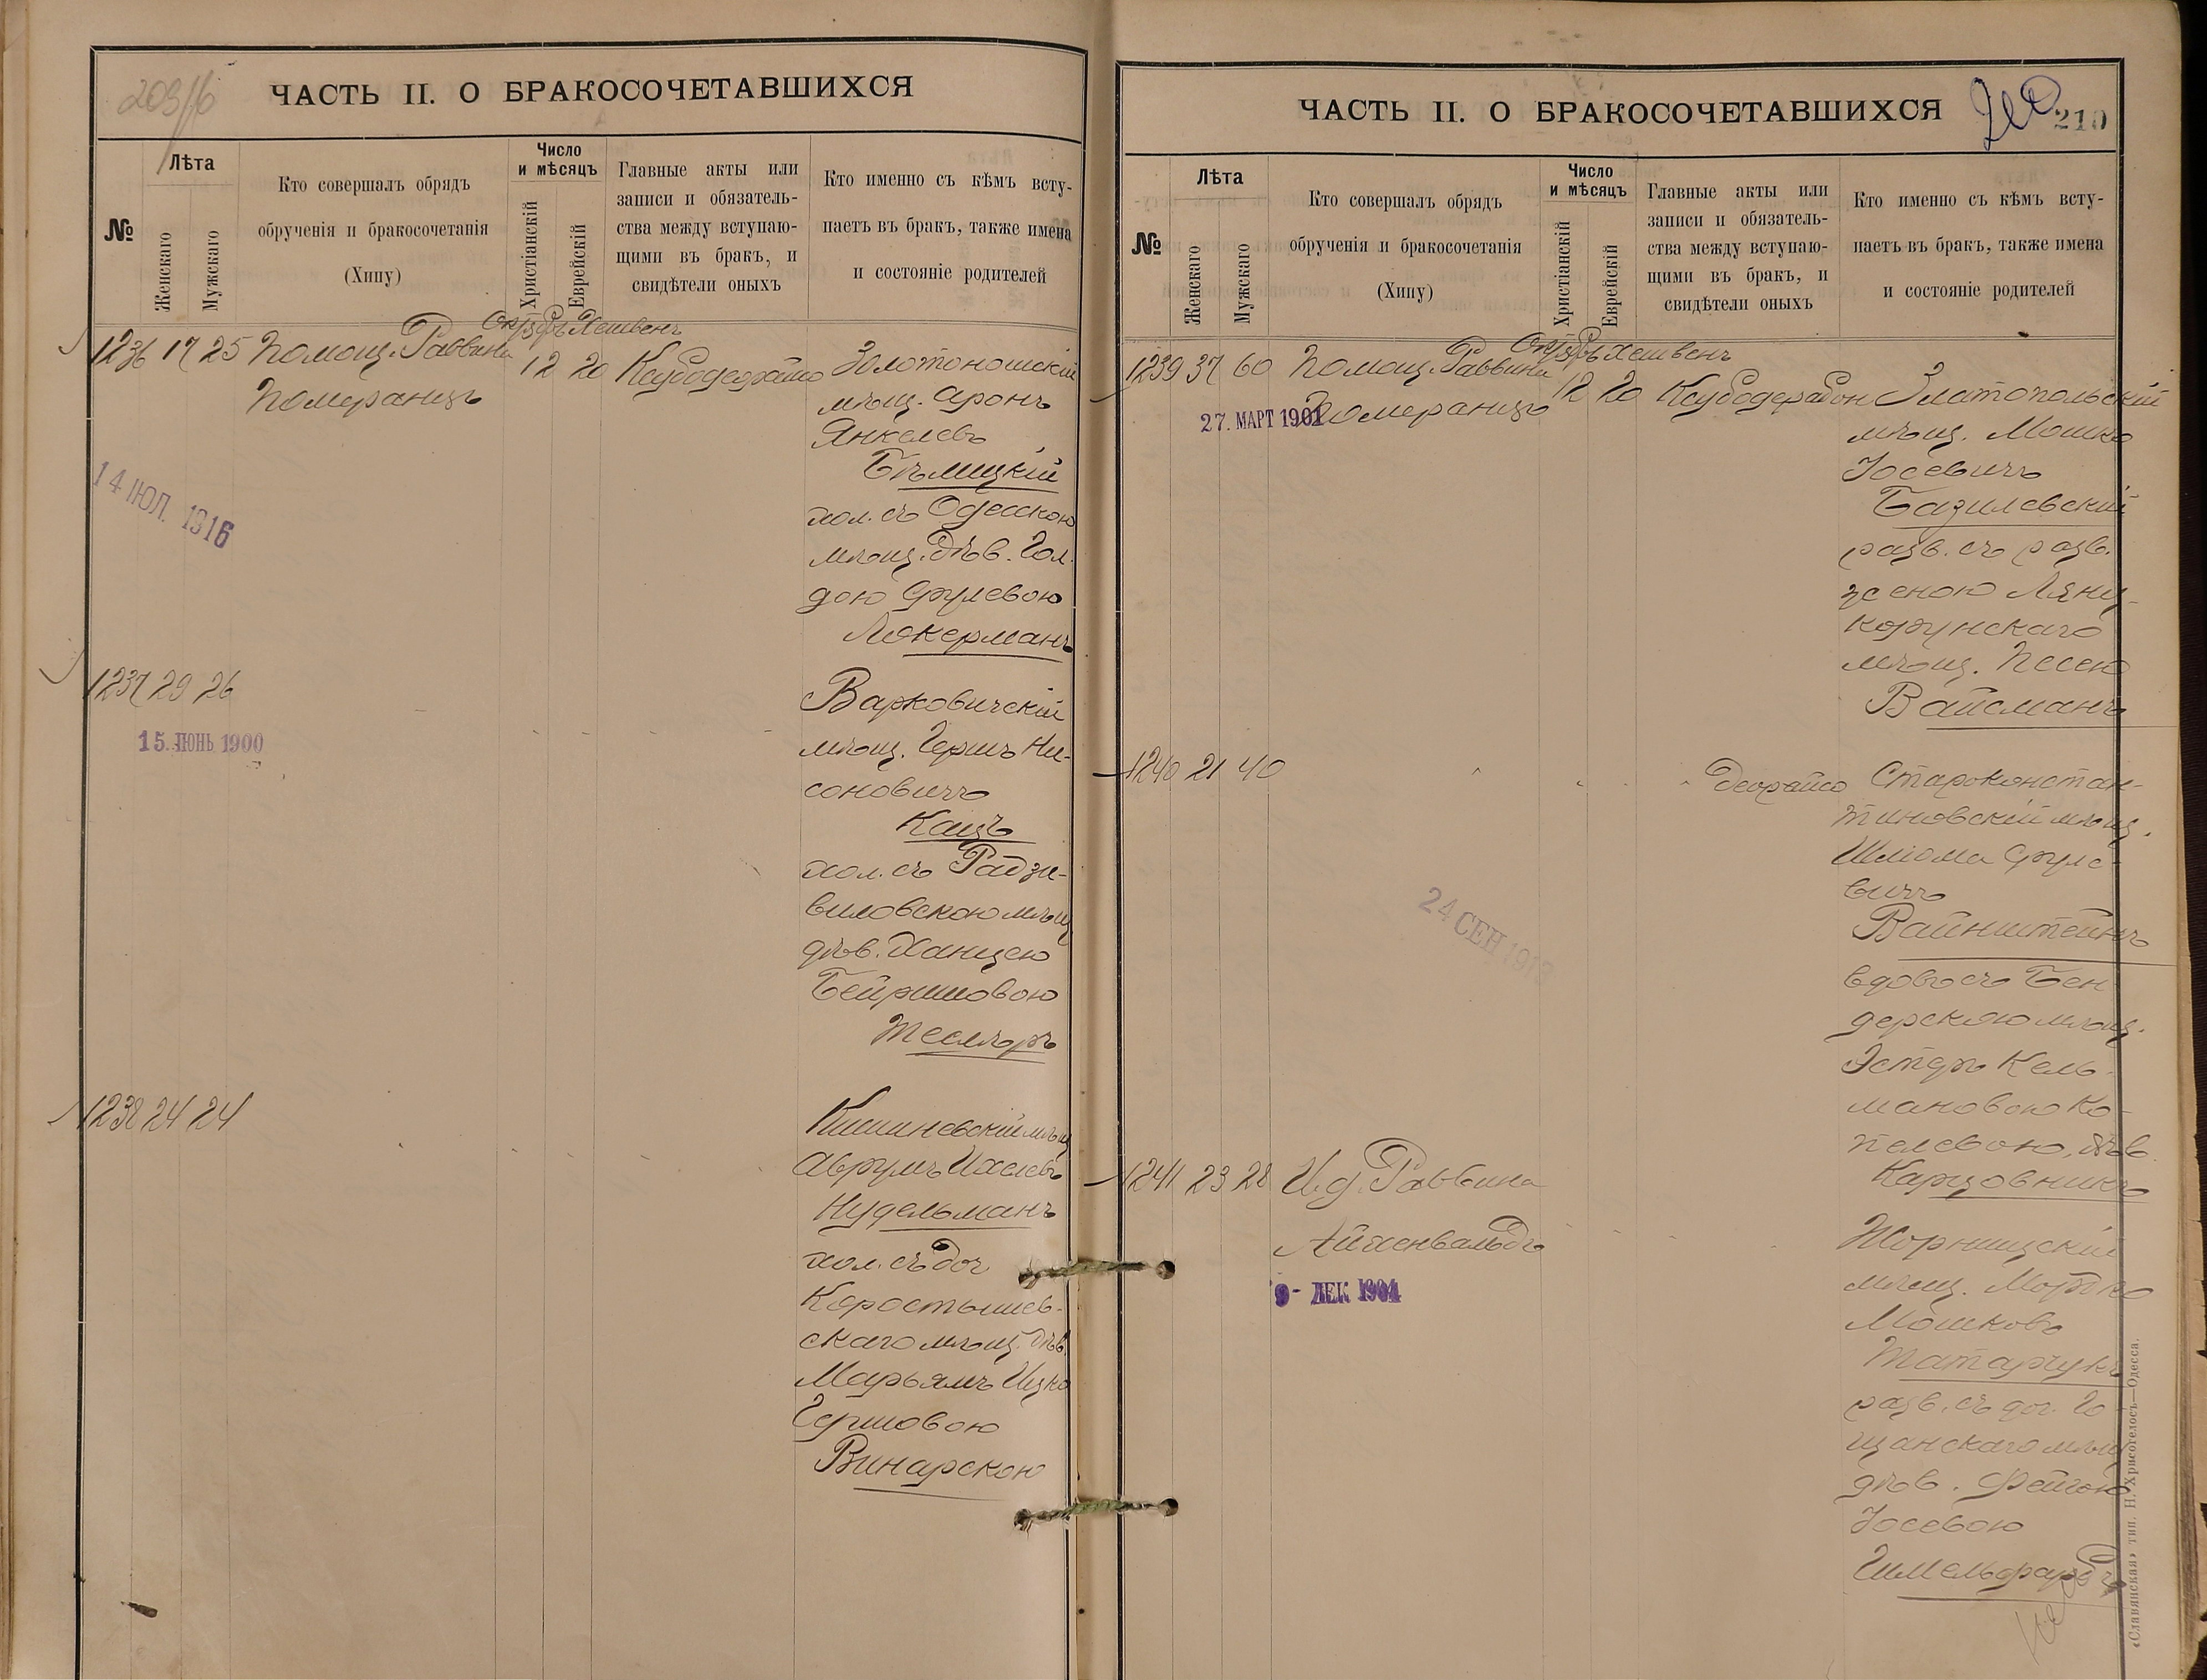 203/б
ЧАСТЬ II. О БРАКОСОЧЕТАВШИХСЯ
№
Лѣта
Женскаго
Мужскаго
Кто совершалъ обрядъ
обрученія и бракосочетанія
(Хипу)
Число
и мѣсяцъ
Христіанскій
Еврейскій
Главные акты или
записи и обязатель-
ства между вступаю-
щими въ бракъ, и
свидѣтели оныхъ
Кто именно съ кѣмъ всту-
паетъ въ бракъ, также имена
и состояніе родителей
Октябрь Хешвенъ
1236 17 25 Помощ. Раввина 12 20 Ксубодеорайсо Золотоношскій
Померанцъ
мѣщ. Аронъ
Янкелевъ
Бѣлицкій
хол. съ Одесскою
мѣщ. дѣв. Гол-
дою Срулевою
Локерманъ
14 ІЮЛ. 1916
1237 29 26
Варковичскій
15. ІЮНЬ 1900
мѣщ. Гершъ Ни-
соновичъ
Кацъ
хол. съ Радзи-
виловскою мѣщ
дѣв. Ханцею
Бейришовою
Тесляръ
1238 24 24
Кишиневскій мѣщ
Аврумъ Ихелевъ
Нудельманъ
хол. съ доч.
Коростышев-
скаго мѣщ. дѣв.
Марьямъ Ицко
Гершовою
Винарскою
ЧАСТЬ II. О БРАКОСОЧЕТАВШИХСЯ
210
№
Лѣта
Женскаго
Мужскаго
Кто совершалъ обрядъ
обрученія и бракосочетанія
(Хипу)
Число
и мѣсяцъ
Христіанскій
Еврейскій
Главные акты или
записи и обязатель-
ства между вступаю-
щими въ бракъ, и
свидѣтели оныхъ
Кто именно съ кѣмъ всту-
паетъ въ бракъ, также имена
и состояніе родителей
Октябрь Хешвенъ
1239 37 60 Помощ. Раввина 12 20 Ксубодерабон Златопольскій
27. МАРТ 1901
Померанцъ
мѣщ. Мошко
Іосевичъ
Базилевскій
разв. съ разв.
женою Лянц-
корунскаго
мѣщ. Песею
Вайсманъ
1240 21 40
Деорайсо Староконстан-
тиновскій мѣщ.
Шліома Сруле-
вичъ
Вайнштейнъ
24 СЕН
вдов. съ Бен
дерскою мѣщ.
Эстеръ Кель-
мановою Ко-
пелевою, дѣв.
Карцовникъ
1241 23 28 И. д. Раввина
Айхенвальдъ
9 - ДЕК 1904
Жорнищскій
мѣщ. Мордко
Мошковъ
Татарчукъ
разв. съ доч. Го-
щанскаго мѣщ
дѣв. Фейгою
Іосевою
Гимельфарбъ
«Славянская» тип. Н. Хрисогелосъ—Одесса.